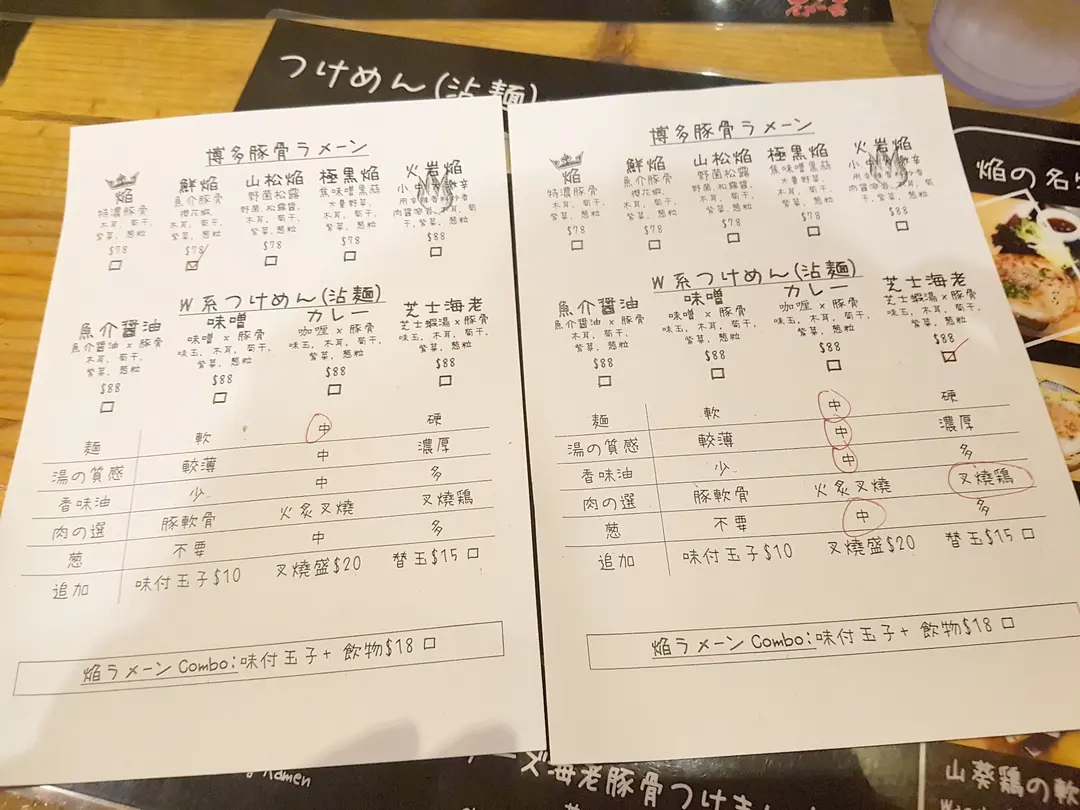 つけめん(沾麵)
博多豚骨ラーメン
焔 鮮焔 山松焔 極黒焔 火岩焔
特濃豚骨 魚介豚骨 野菌松露 焦味噌黒蒜
木耳, 荀干, 櫻花蝦, 野菌, 松露醤, 大量野菜,
紫菜, 葱粒 木耳, 荀干, 木耳, 荀干, 木耳, 荀干,
紫菜, 葱粒 紫菜, 葱粒 紫菜, 葱粒
$78 $78 $78 $78 $88
W系つけめん(沾麵)
魚介醤油 味噌 カレー 芝士海老
魚介醤油 x 豚骨 味噌 x 豚骨 咖喱 x 豚骨 芝士蝦湯 x 豚骨
木耳, 荀干, 味玉, 木耳, 荀干, 味玉, 木耳, 荀干, 味玉, 木耳, 荀干,
紫菜, 葱粒 紫菜, 葱粒 紫菜, 葱粒 紫菜, 葱粒
$88 $88 $88 $88
麺 軟 中 硬
湯の質感 較薄 中 濃厚
香味油 少 中 多
肉の選 豚軟骨 火炙叉燒 叉燒鶏
葱 不要 中 多
追加 味付玉子$10 叉燒盛$20 替玉$15
焔ラーメン Combo:味付玉子+ 飲物$18
博多豚骨ラーメン
焔 鮮焔 山松焔 極黒焔 火岩焔
特濃豚骨 魚介豚骨 野菌松露 焦味噌黒蒜
木耳, 荀干, 櫻花蝦, 野菌, 松露醤, 大量野菜,
紫菜, 葱粒 木耳, 荀干, 木耳, 荀干, 木耳, 荀干,
紫菜, 葱粒 紫菜, 葱粒 紫菜, 葱粒
$78 $78 $78 $78 $88
W系つけめん(沾麵)
魚介醤油 味噌 カレー 芝士海老
魚介醤油 x 豚骨 味噌 x 豚骨 咖喱 x 豚骨 芝士蝦湯 x 豚骨
木耳, 荀干, 味玉, 木耳, 荀干, 味玉, 木耳, 荀干, 味玉, 木耳, 荀干,
紫菜, 葱粒 紫菜, 葱粒 紫菜, 葱粒 紫菜, 葱粒
$88 $88 $88 $88
麺 軟 中 硬
湯の質感 較薄 中 濃厚
香味油 少 中 多
肉の選 豚軟骨 火炙叉燒 叉燒鶏
葱 不要 中 多
追加 味付玉子$10 叉燒盛$20 替玉$15
焔ラーメン Combo:味付玉子+ 飲物$18
焔の名
Ramen
ーズ海老豚骨つけ
山葵鶏の軟